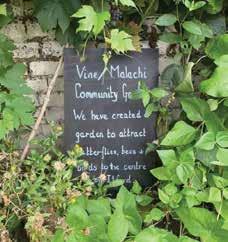 Vine Malachi
Community
We have created
garden to attract
butterflies, bees &
birds to the centre